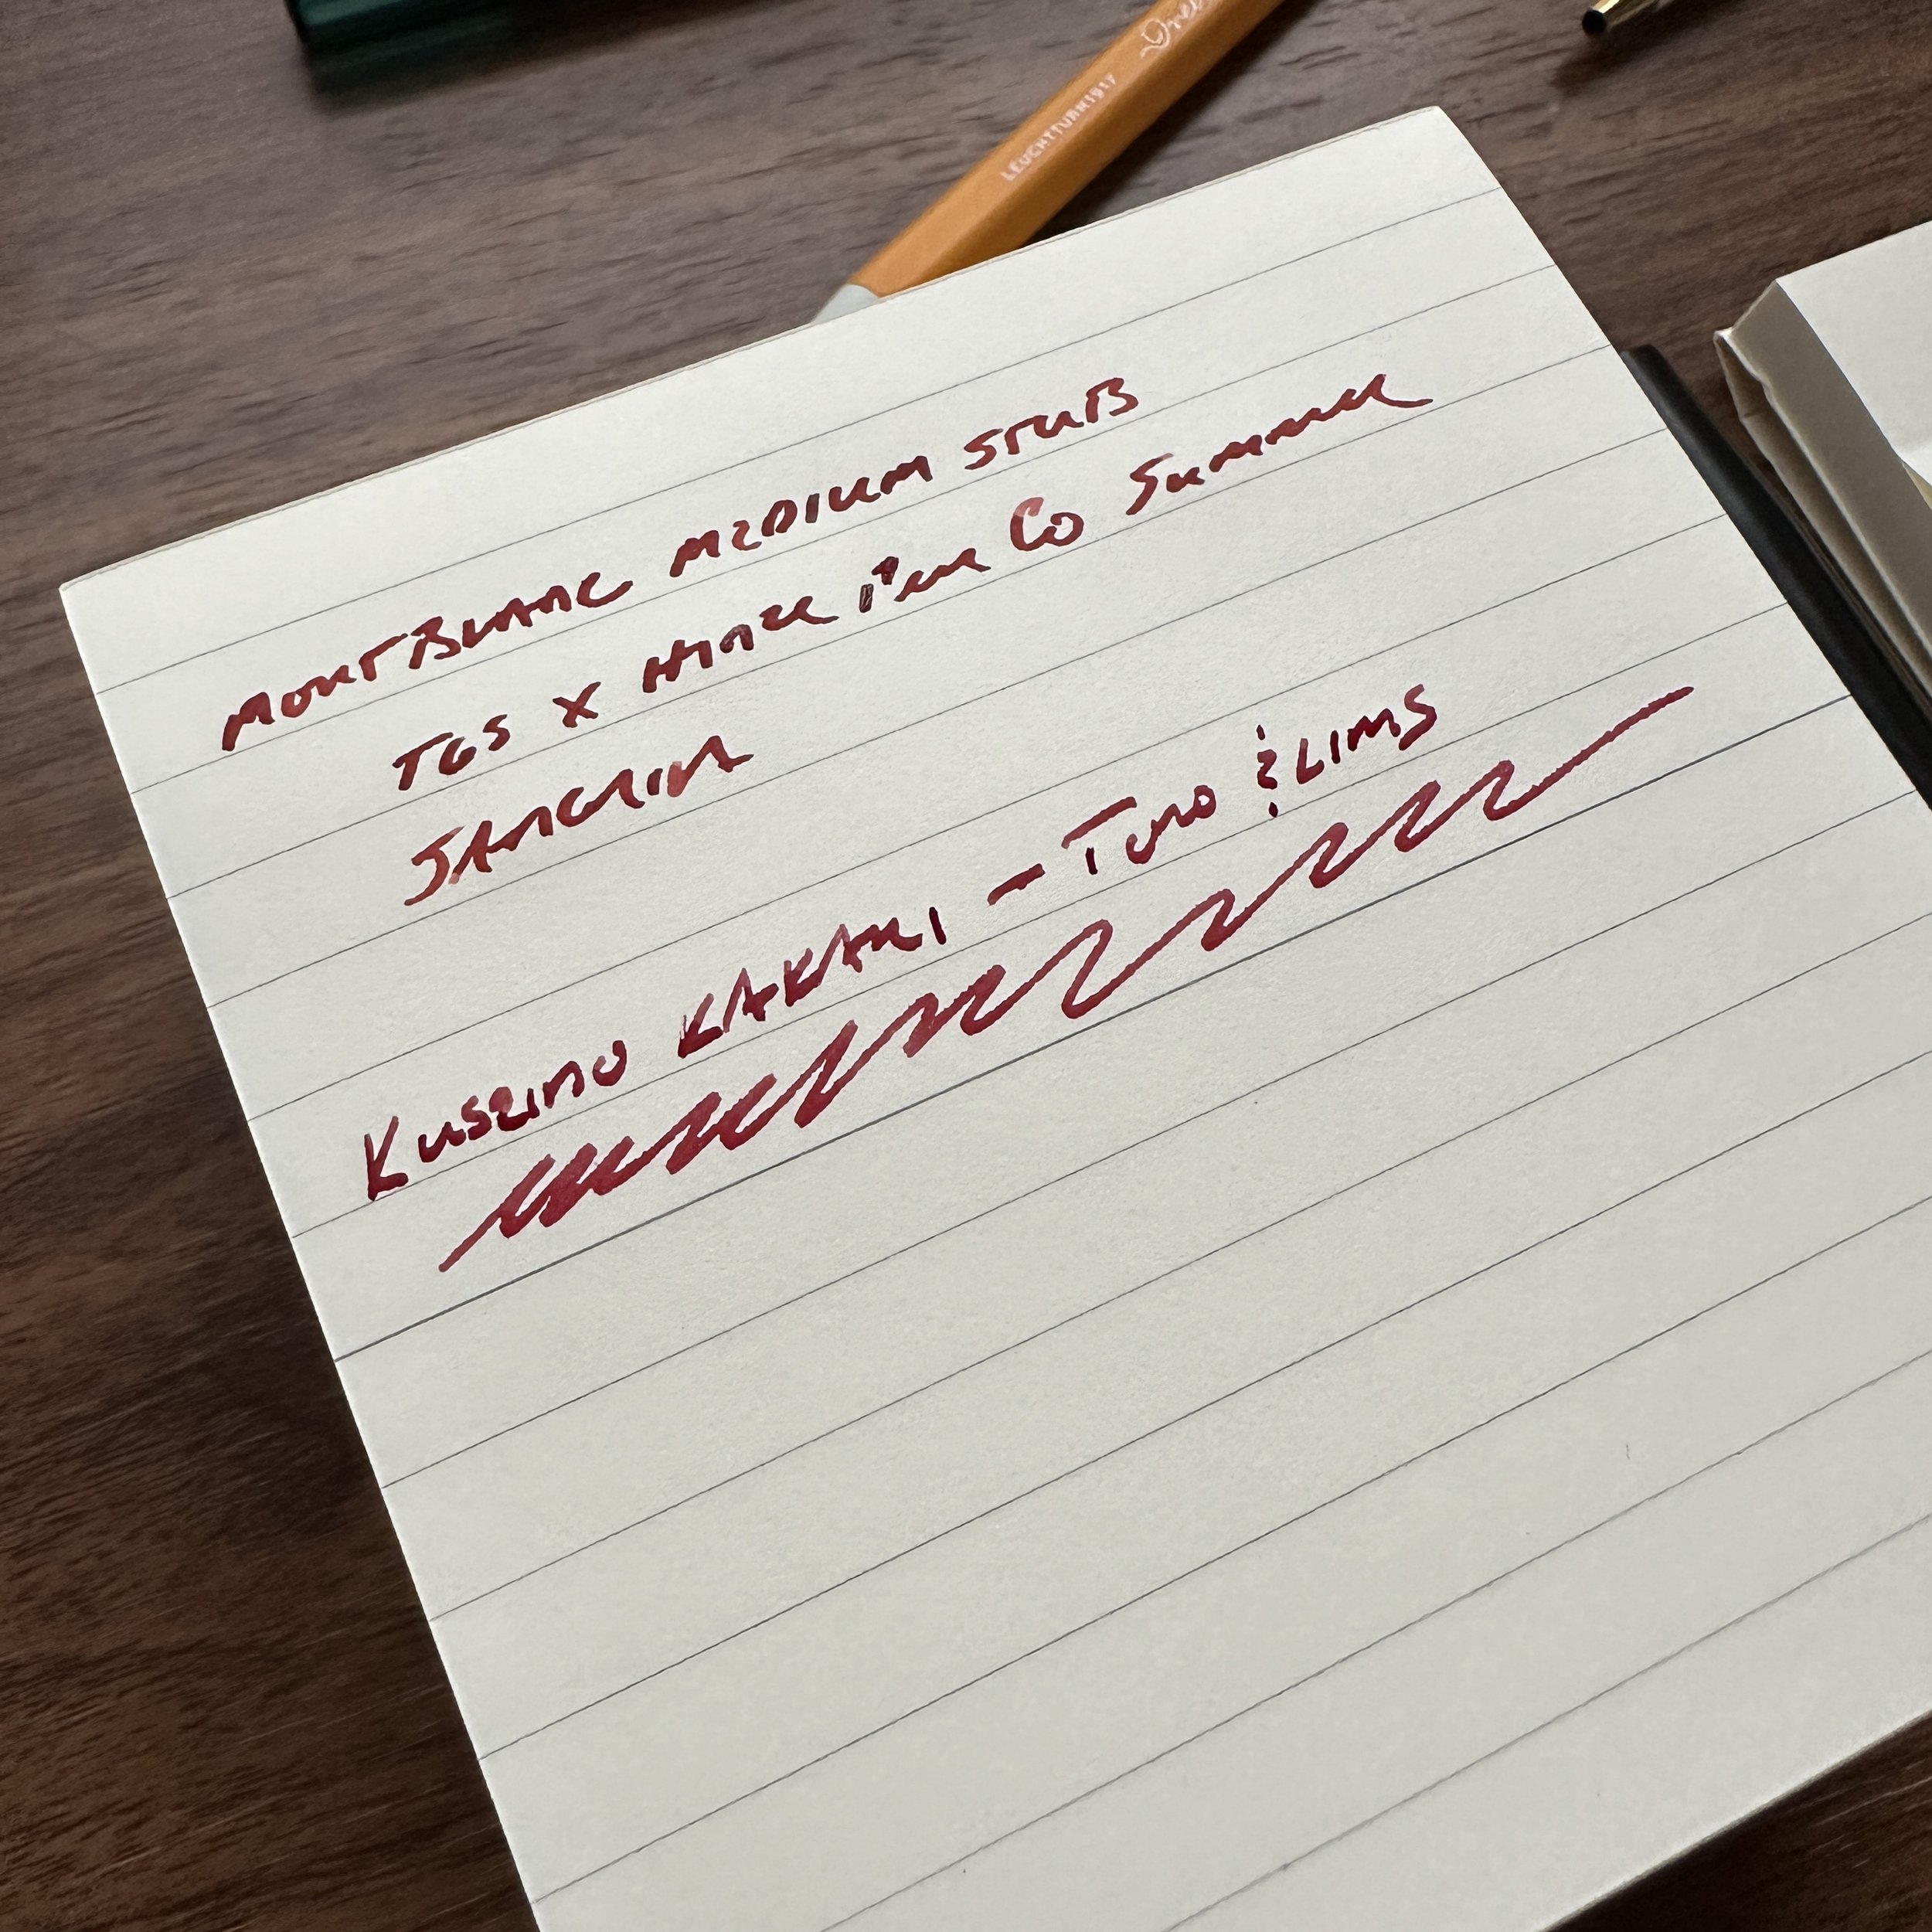 LEUCHTTURM1917
MONTBLANC MEDIUM STUB
TGS X HINZE PEN CO SUMMER
SANGRIA
KAKARI - TONO & LIMS